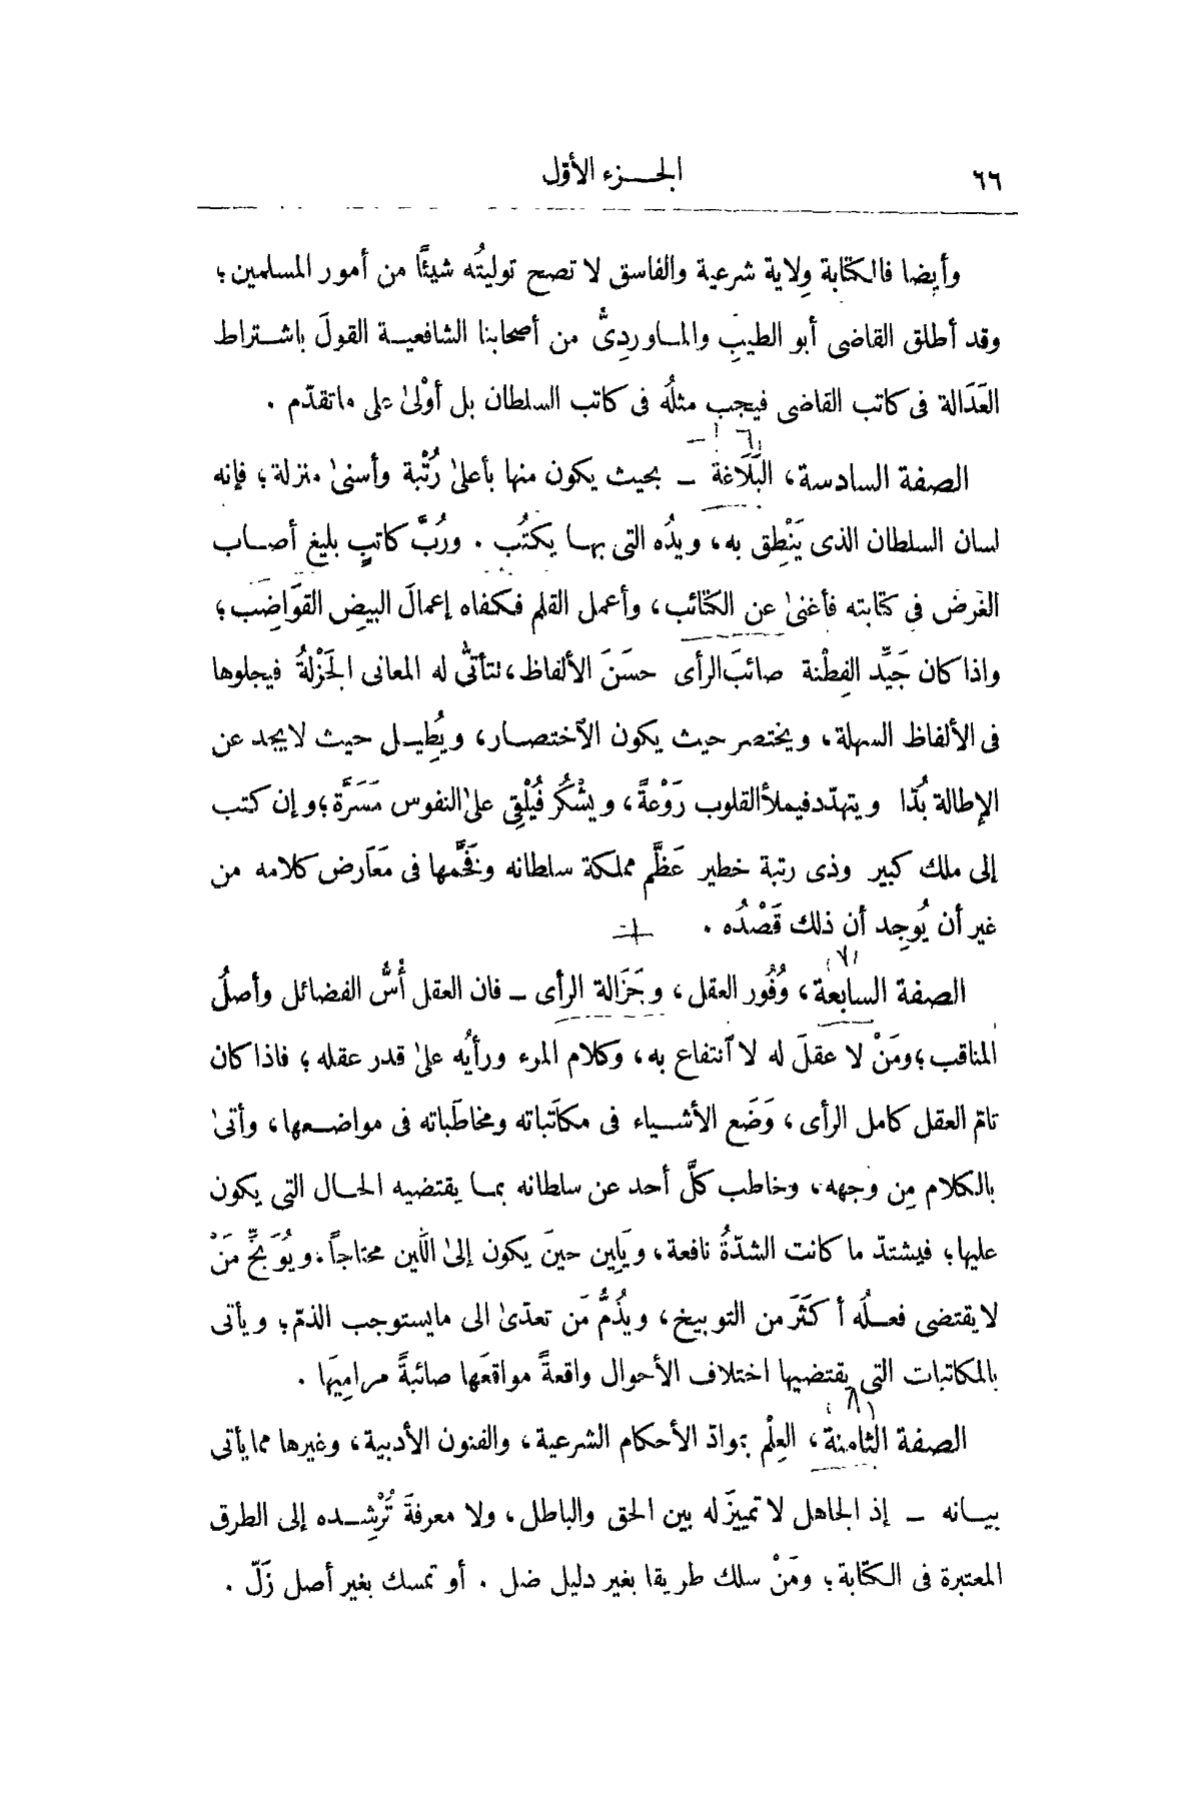 ٦٦ الجـــزء الأوّل
وأيضا فالكتابة وِلاية شرعية والفاسق لا تصح توليتُه شيئًا من أمور المسلمين؛
وقد أطلق القاضى أبو الطيبِ والمـاوردِىُّ من أصحابنا الشافعيـة القولَ باشـتراط
العَدَالة فى كاتب القاضى فيجب مثلُه فى كاتب السلطان بل أوْلىٰ على ماتقدّم .
٦
الصفة السادسة، البَلَاغة ـ بحيث يكون منها بأعلىٰ رُتْبة وأسنىٰ منزلة؛ فإنه
لسان السلطان الذى يَنْطِق به، ويدُه التى بهـا يكتُب . ورُبَّ كاتبٍ بليغ أصـاب
الغرض فى كتابته فأغنىٰ عن الكتائب، وأعمل القلم فكفاه إعمالَ البيضِ القوَاضِب؛
واذا كان جَيِّد الفِطْنة صائبَ الرأى حسَنَ الألفاظ، تتأتّىٰ له المعانى الجَزْلةُ فيجلوها
فى الألفاظ السهلة، ويختصر حيث يكون الآختصـار، ويُطِيـل حيث لايجد عن
الإطالة بُدّا ويتهدّد فيملأ القلوب رَوْعةً، ويشْكُر فيُلْقِى علىٰ النفوس مَسَرَّة؛ وإن كتب
إلى ملك كبير وذى رتبة خطير عَظَّم مملكة سلطانه وفَخَّمها فى مَعَارض كلامه من
غير أن يُوجِد أن ذلك قَصْدُه .
٧
الصفة السابعة، وُفُور العقل، وجَزَالة الرأى ـ فان العقل أُسُّ الفضائل وأصلُ
المناقب؛ ومَنْ لا عقلَ له لا آنتفاع به، وكلام المرء ورأيُه علىٰ قدر عقله؛ فاذا كان
تامّ العقل كامل الرأى، وَضَع الأشـياء فى مكاتَباته ومخاطَباته فى مواضـعها، وأتىٰ
بالكلام مِن وجهه، وخاطب كلَّ أحد عن سلطانه بمـا يقتضيه الحـال التى يكون
عليها؛ فيشتدّ ما كانت الشدّةُ نافعة، ويَلِين حينَ يكون إلىٰ اللِّين محتاجاً. ويُوَبِّخُ مَنْ
لايقتضى فعـلُه أكثَرَ من التوبيخ، ويذُمُّ مَن تعدّىٰ الى مايستوجب الذمّ؛ ويأتى
بالمكاتبات التى يقتضيها اختلاف الأحوال واقعةً مواقعَها صائبةً مرامِيَها .
٨
الصفة الثامنة، العِلْم بموادّ الأحكام الشرعية، والفنون الأدبية، وغيرها مما يأتى
بيـانه ـ إذ الجاهل لا تمييزَ له بين الحق والباطل، ولا معرفةَ تُرْشِـده إلى الطرق
المعتبرة فى الكتابة؛ ومَنْ سلك طريقا بغير دليل ضل . أو تمسك بغير أصل زَلّ .